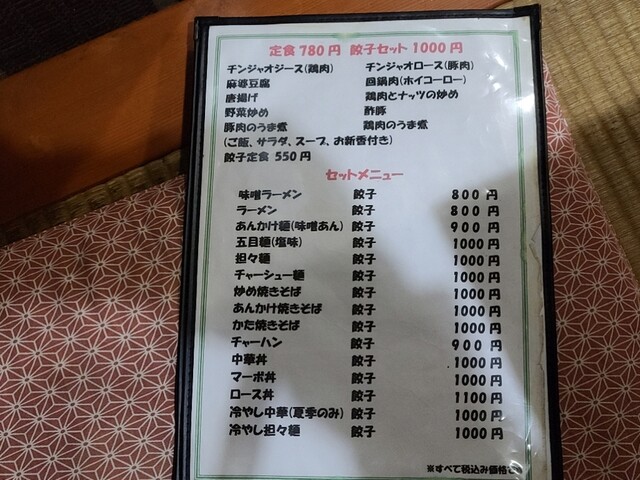 定食 780円 餃子セット 1000円
チンジャオジース(鶏肉) チンジャオロース(豚肉)
麻婆豆腐 回鍋肉(ホイコーロー)
唐揚げ 鶏肉とナッツの炒め
野菜炒め 酢豚
豚肉のうま煮 鶏肉のうま煮
(ご飯、サラダ、スープ、お新香付き)
餃子定食 550円
セットメニュー
味噌ラーメン 餃子 800円
ラーメン 餃子 800円
あんかけ麺(味噌あん) 餃子 900円
五目麺(塩味) 餃子 1000円
担々麺 餃子 1000円
チャーシュー麺 餃子 1000円
炒め焼きそば 餃子 1000円
あんかけ焼きそば 餃子 1000円
かた焼きそば 餃子 1000円
チャーハン 餃子 900円
中華丼 餃子 1000円
マーボ丼 餃子 1000円
ロース丼 餃子 1100円
冷やし中華(夏季のみ) 餃子 1000円
冷やし担々麺 餃子 1000円
※すべて税込み価格